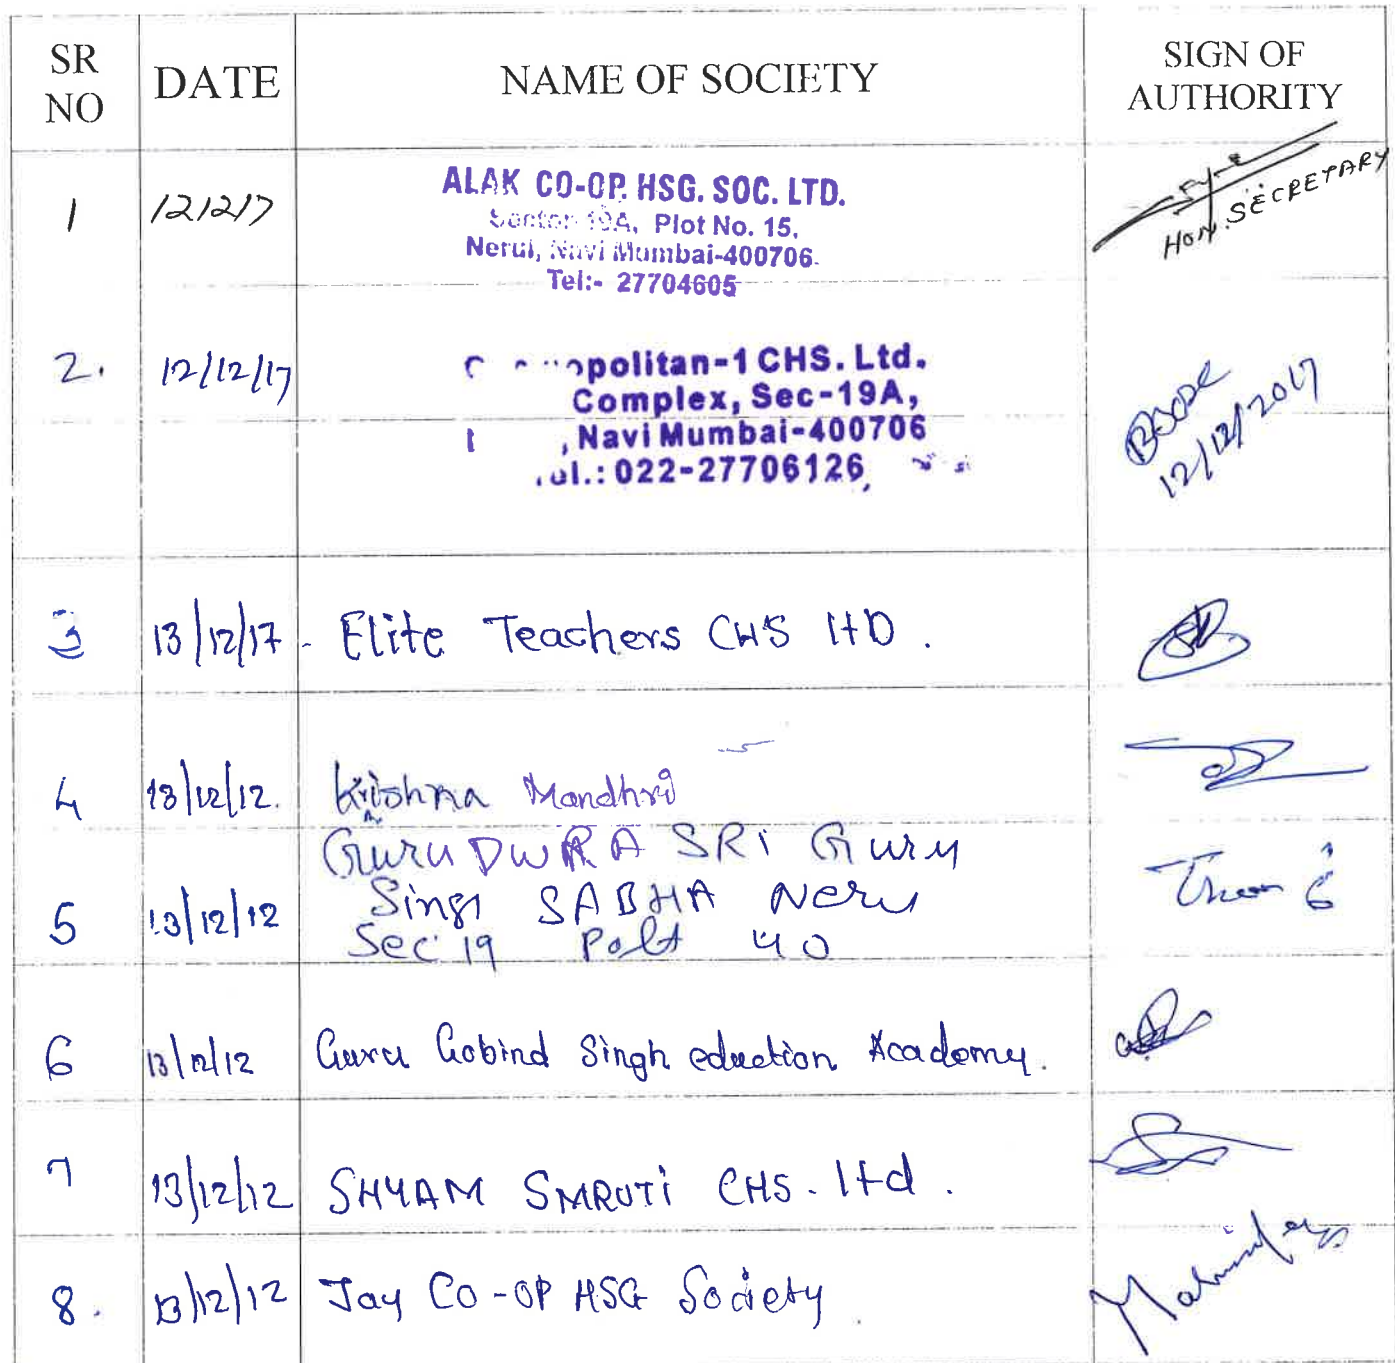 SR NO DATE NAME OF SOCIETY SIGN OF AUTHORITY
1 121217 ALAK CO-OP. HSG. SOC. LTD.
Sector-19A, Plot No. 15,
Nerul, Navi Mumbai-400706.
Tel:- 27704605
HON. SECRETARY
2. 12/12/17 politan-1 CHS. Ltd.
Complex, Sec-19A,
, Navi Mumbai-400706
el.: 022-27706126
12/12/2017
3 13/12/17 - Elite Teachers CHS ltD.
4 13/12/12. Krishna
5 13/12/12 GuruDWRA SRi Guru
Sing SABHA Neru
Sec 19 Polt 40
6 13/12/12 Guru Gobind Singh eduction Academy.
7 13/12/12 SHYAM SMRUTi CHS. ltd.
8. 13/12/12 Jay CO-OP HSG Society